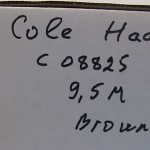 Cole Haa
C 08825
9,5 M
Brown